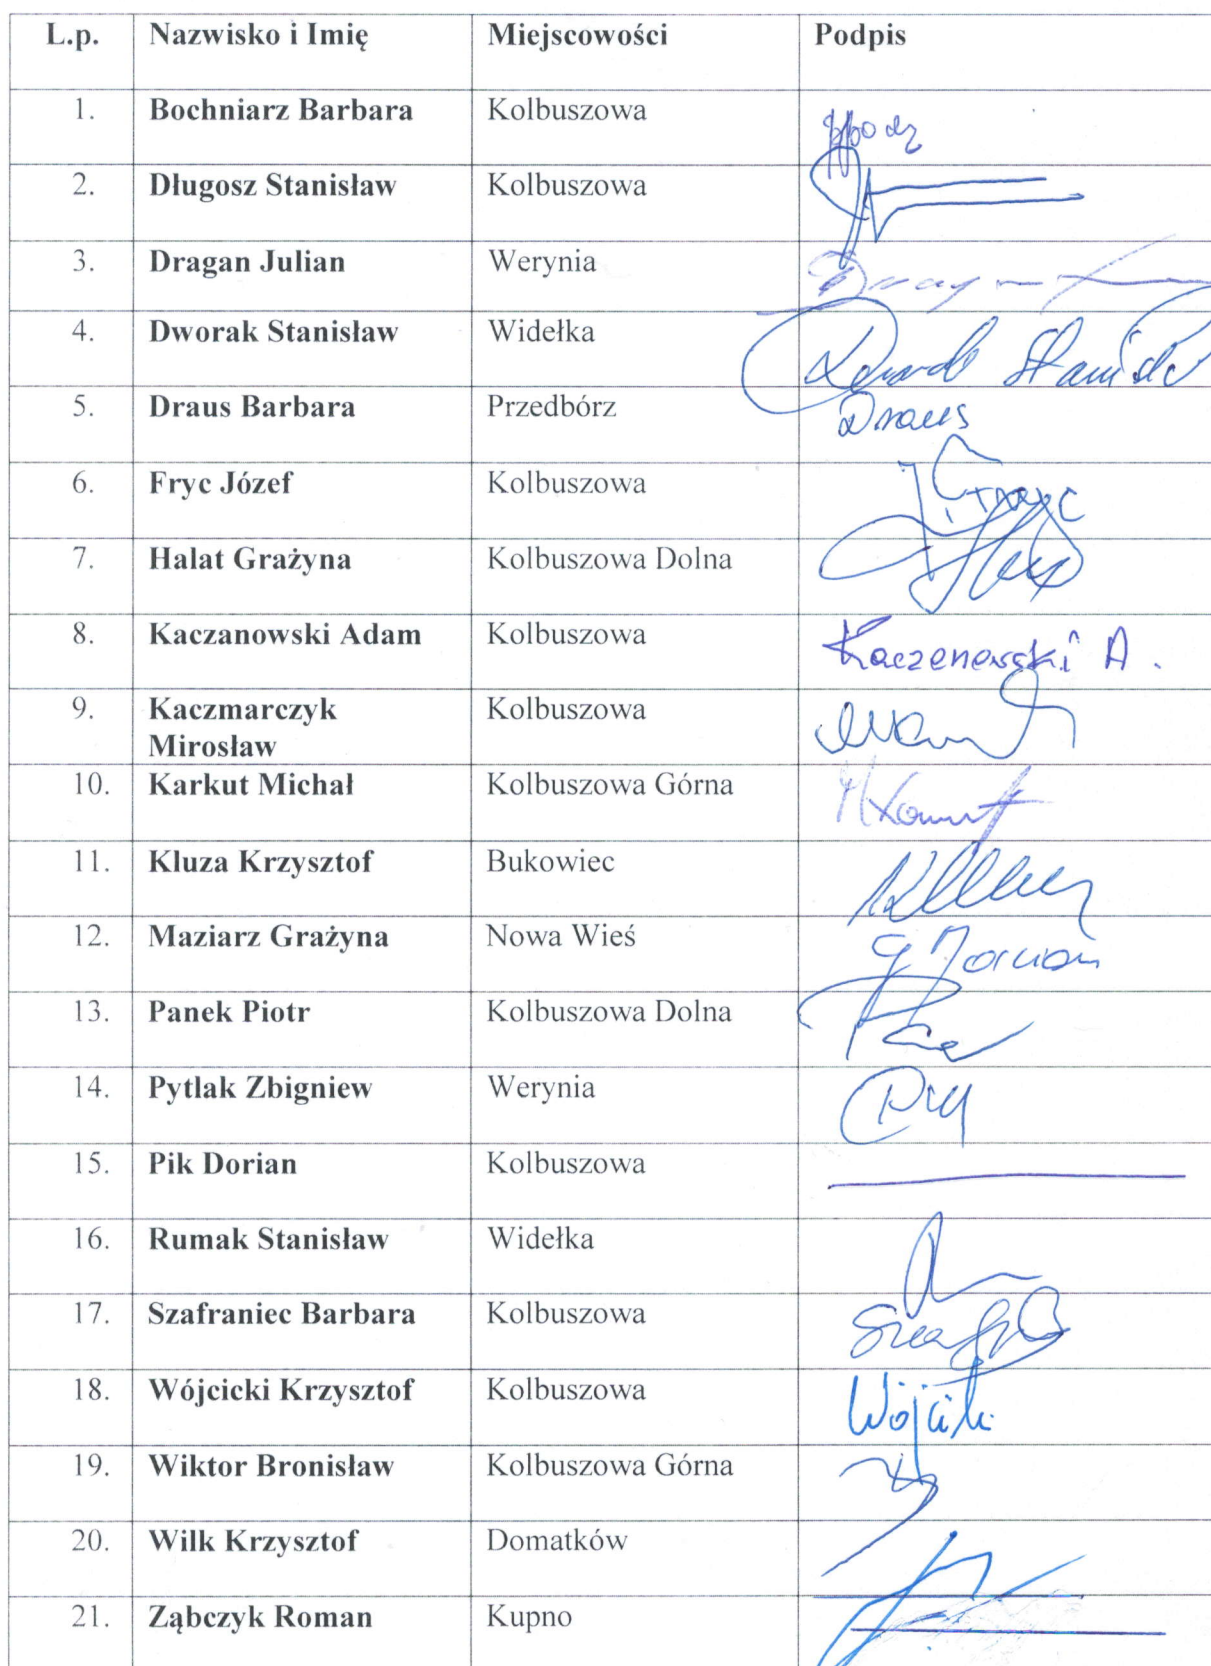 L.p. Nazwisko i Imię Miejscowości Podpis
1. Bochniarz Barbara Kolbuszowa
2. Długosz Stanisław Kolbuszowa
3. Dragan Julian Werynia
4. Dworak Stanisław Widełka
5. Draus Barbara Przedbórz Draus
6. Fryc Józef Kolbuszowa
7. Halat Grażyna Kolbuszowa Dolna
8. Kaczanowski Adam Kolbuszowa Kaczanowski A.
9. Kaczmarczyk Kolbuszowa
Mirosław
10. Karkut Michał Kolbuszowa Górna
11. Kluza Krzysztof Bukowiec
12. Maziarz Grażyna Nowa Wieś
13. Panek Piotr Kolbuszowa Dolna
14. Pytlak Zbigniew Werynia
15. Pik Dorian Kolbuszowa
16. Rumak Stanisław Widełka
17. Szafraniec Barbara Kolbuszowa
18. Wójcicki Krzysztof Kolbuszowa
19. Wiktor Bronisław Kolbuszowa Górna
20. Wilk Krzysztof Domatków
21. Ząbczyk Roman Kupno